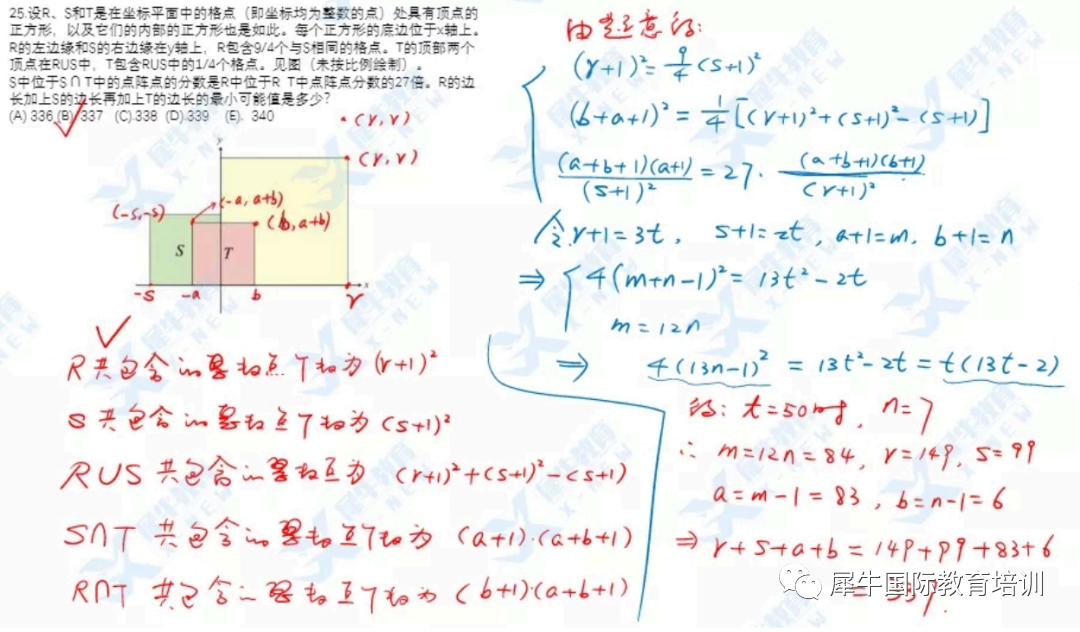 25.设R、S和T是在坐标平面中的格点（即坐标均为整数的点）处具有顶点的
正方形，以及它们的内部的正方形也是如此。每个正方形的底边位于x轴上。
R的左边缘和S的右边缘在y轴上，R包含9/4个与S相同的格点。T的顶部两个
顶点在RUS中，T包含RUS中的1/4个格点。见图（未按比例绘制）。
S中位于S∩T中的点阵点的分数是R中位于R T中点阵点分数的27倍。R的边
长加上S的边长再加上T的边长的最小可能值是多少?
(A) 336 (B) 337 (C).338 (D).339 (E). 340
(r,r)
y
(r,r)
(-a, a+b)
(-s,-s)
(b, a+b)
S
T
-s
-a
b
r
x
R 共包含的整数点个数为 (r+1)²
S 共包含的整数点个数为 (s+1)²
RUS 共包含的整数点为 (r+1)²+(s+1)²-(s+1)
S∩T 共包含的整数点个数为 (a+1)·(a+b+1)
R∩T 共包含的整数点个数为 (b+1)·(a+b+1)
由题意得:
(r+1)²= 9/4 (s+1)²
(b+a+1)² = 1/4 [(r+1)²+(s+1)²-(s+1)]
(a+b+1)(a+1)/(s+1)² = 27· (a+b+1)(b+1)/(r+1)²
令 r+1=3t, s+1=2t, a+1=m, b+1=n
⇒ 4(m+n-1)²= 13t²-2t
m=12n
⇒ 4(13n-1)² = 13t²-2t = t(13t-2)
得: t=50 时, n=7
∴ m=12n=84, r=149, s=99
a=m-1=83, b=n-1=6
⇒ r+s+a+b=149+99+83+6
=337.
犀牛国际教育培训
犀牛教育
X-NEW